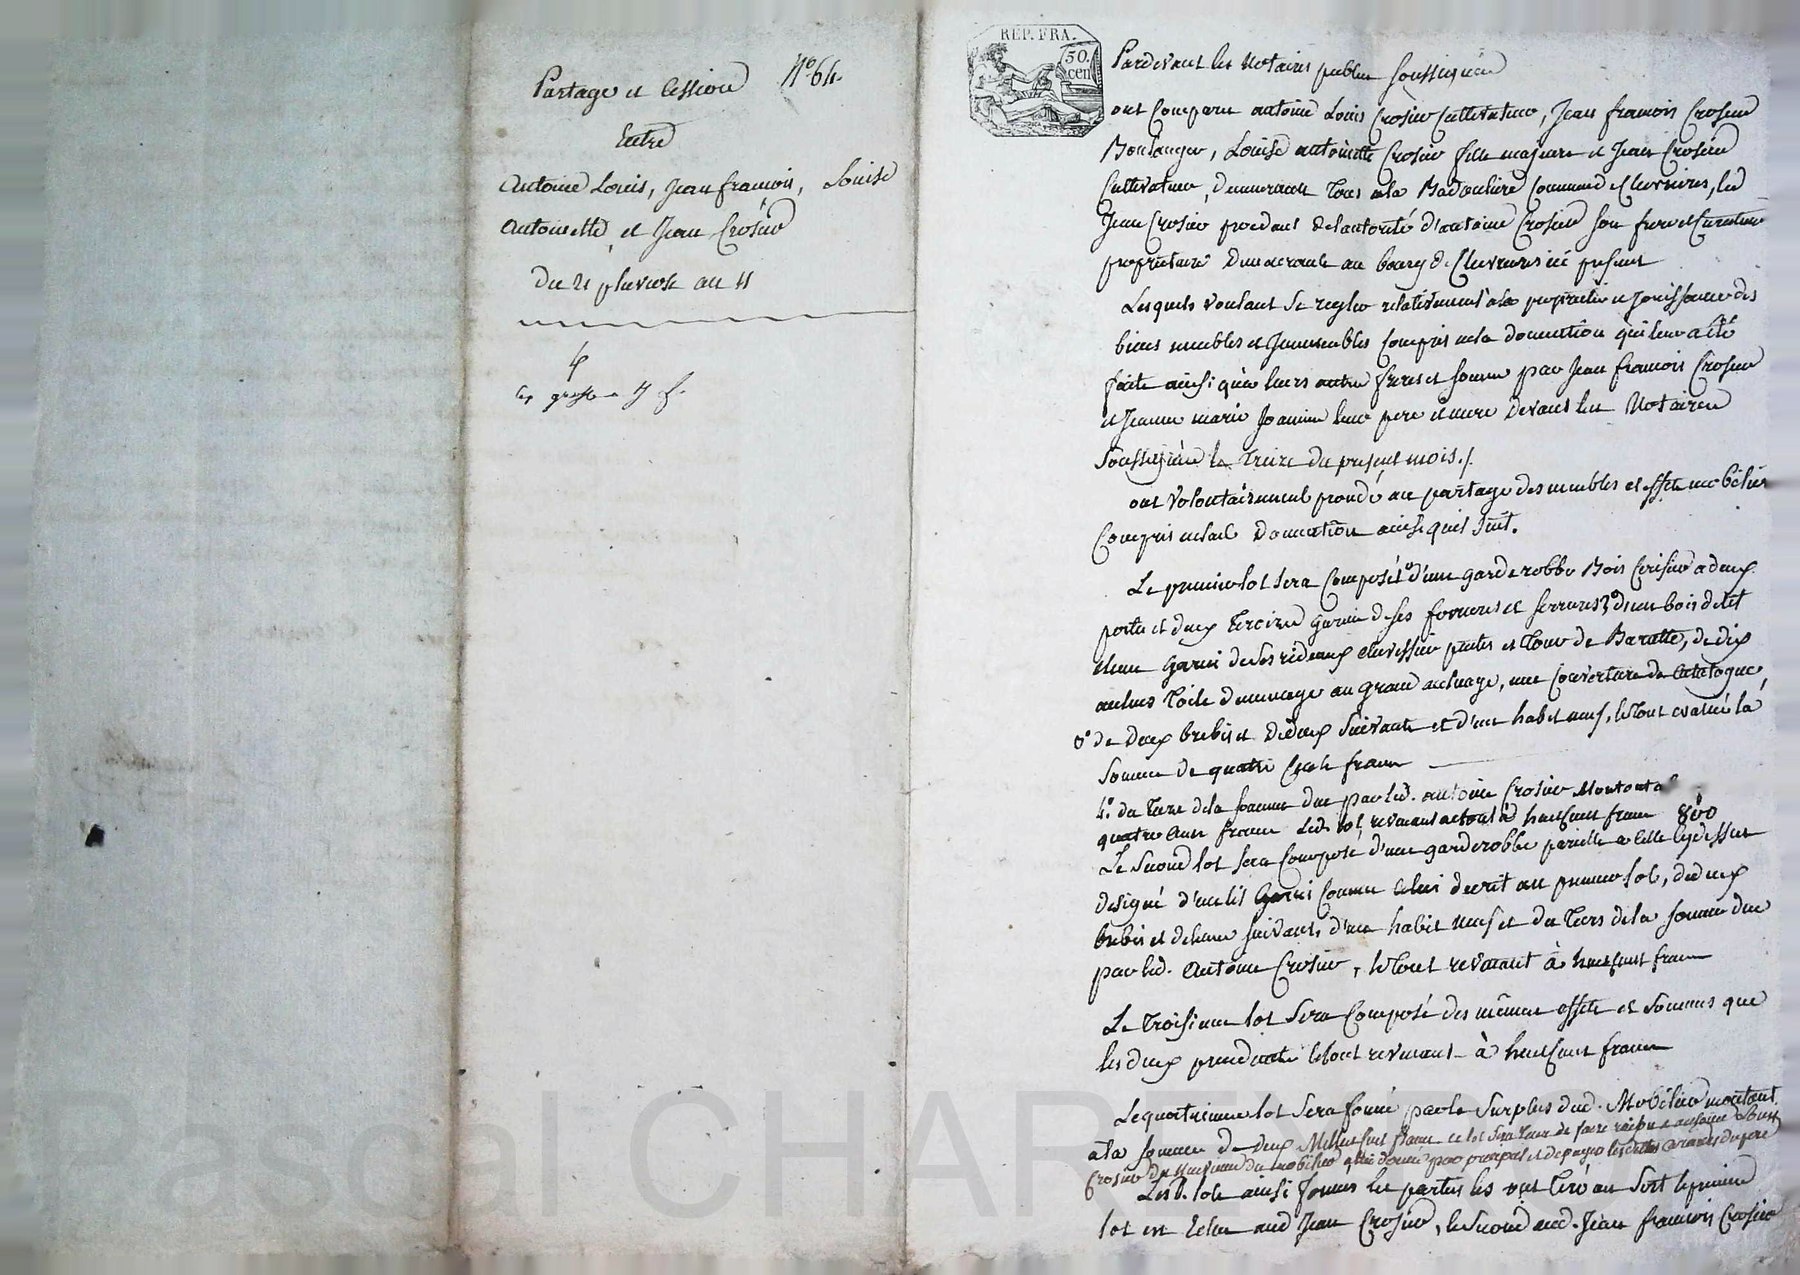 Partage et Cession N° 64.
Entre
Antoine Louis, Jean francois, Louise
Antoinette et Jean Crosier
Du 21 pluviose an 11
REP. FRA.
50.
cen
Pardevant les Notaires publics soussignés
ont Comparu antoine Louis Crosier Cultivateur, Jean francois Crosier
Boulanger, Louise antoinette Crosier fille majeure et Jean Crosier
Cultivateur, demeurant Tous a la Badouliere Commune de Chevrieres, led
Jean Crosier procedant de l'autorité d'antoine Crosier son frere et Curateur
proprietaire demeurant au bourg de Chevrieres ici present
Lesquels voulant se regler relativement à la proprieté et Jouissance des
biens meubles et Immeubles Compris en la donnation qui leur a été
faite ainsi qu'a leurs autres freres et soeurs par Jean francois Crosier
et Jeanne marie Joannin leur pere et mere devant les Notaires
Soussignés le Treize du present mois./.
ont volontairement procedé au partage des meubles et effets mobiliers
Compris en lad Donnation ainsi qu'il suit.
Le premier lot sera Composé 1° d'une garderobbe Bois Cerisier a deux
portes et deux Tiroires garnie de ses ferrures et serrures 2° d'un bois de lit
garni de ses rideaux de Baratte, de dix
aulnes Toile de menage au grand aulnage, une Couverture de Catalogue,
3° de Deux brebis et de deux suivants et d'un habit neuf, le tout evalué la
Somme de quatre Cents francs
4° du Tiers de la somme due par led. antoine Crosier Montant a
quatre Cents francs Led. lot revenant a total à huit cent francs 800
Le second lot sera Composé d'une garderobbe pareille a celle Cydessus
designé d'un lit garni Comme celui decrit au premier lot, de deux
brebis et de leurs suivants, d'un habit neuf et du Tiers de la somme due
par led. Antoine Crosier, le Tout revenant à huit cent francs
Le Troisieme lot sera Composé des mêmes effets et Sommes que
les deux precedents le tout revenant à huit cent francs
Le quatrieme lot sera formé par le Surplus dud. Mobilier montant
a la somme de deux Mille Cent francs ce lot sera tenu de faire
Crosier
Les d. lots ainsi formés les parties les ont tiré au Sort le premier
lot est Echu aud Jean Crosier, le second aud. Jean francois Crosier
Pascal CHAREYRON